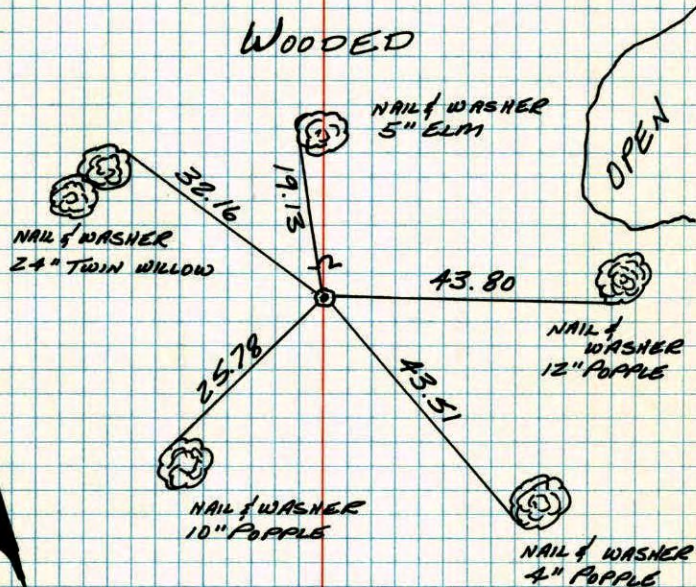 WOODED
NAIL & WASHER
5" ELM
OPEN
32.16
19.13
NAIL & WASHER
24" TWIN WILLOW
43.80
NAIL &
WASHER
12" POPPLE
25.78
43.51
NAIL & WASHER
10" POPPLE
NAIL & WASHER
4" POPPLE